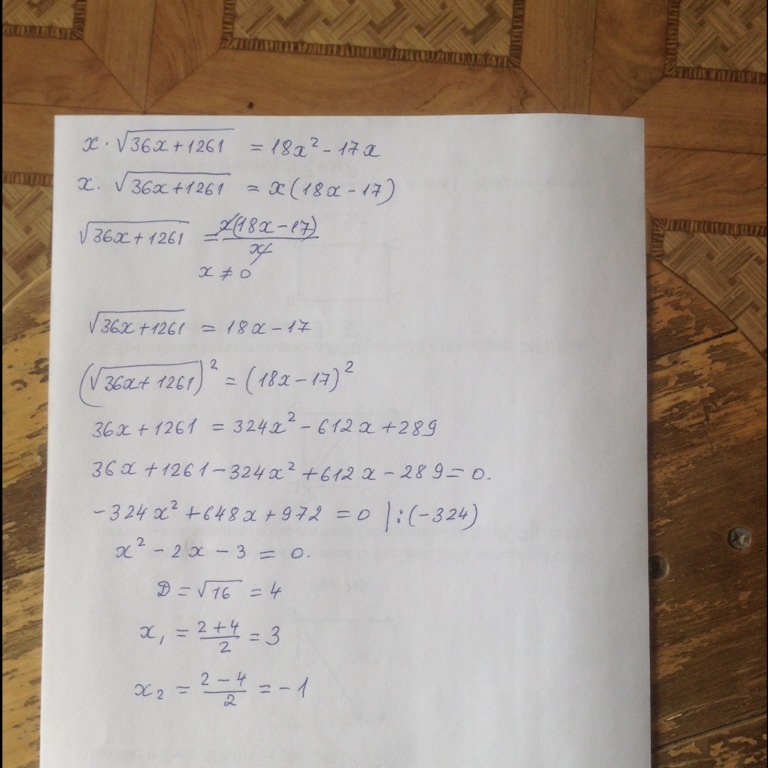 x · √(36x+1261) = 18x² - 17x
x · √(36x+1261) = x(18x-17)
√(36x+1261) = x(18x-17)/x
x ≠ 0
√(36x+1261) = 18x-17
(√(36x+1261))² = (18x-17)²
36x+1261 = 324x² - 612x + 289
36x+1261-324x²+612x-289=0.
-324x²+648x+972 = 0 |:(-324)
x² - 2x - 3 = 0.
D = √16 = 4
x₁ = (2+4)/2 = 3
x₂ = (2-4)/2 = -1